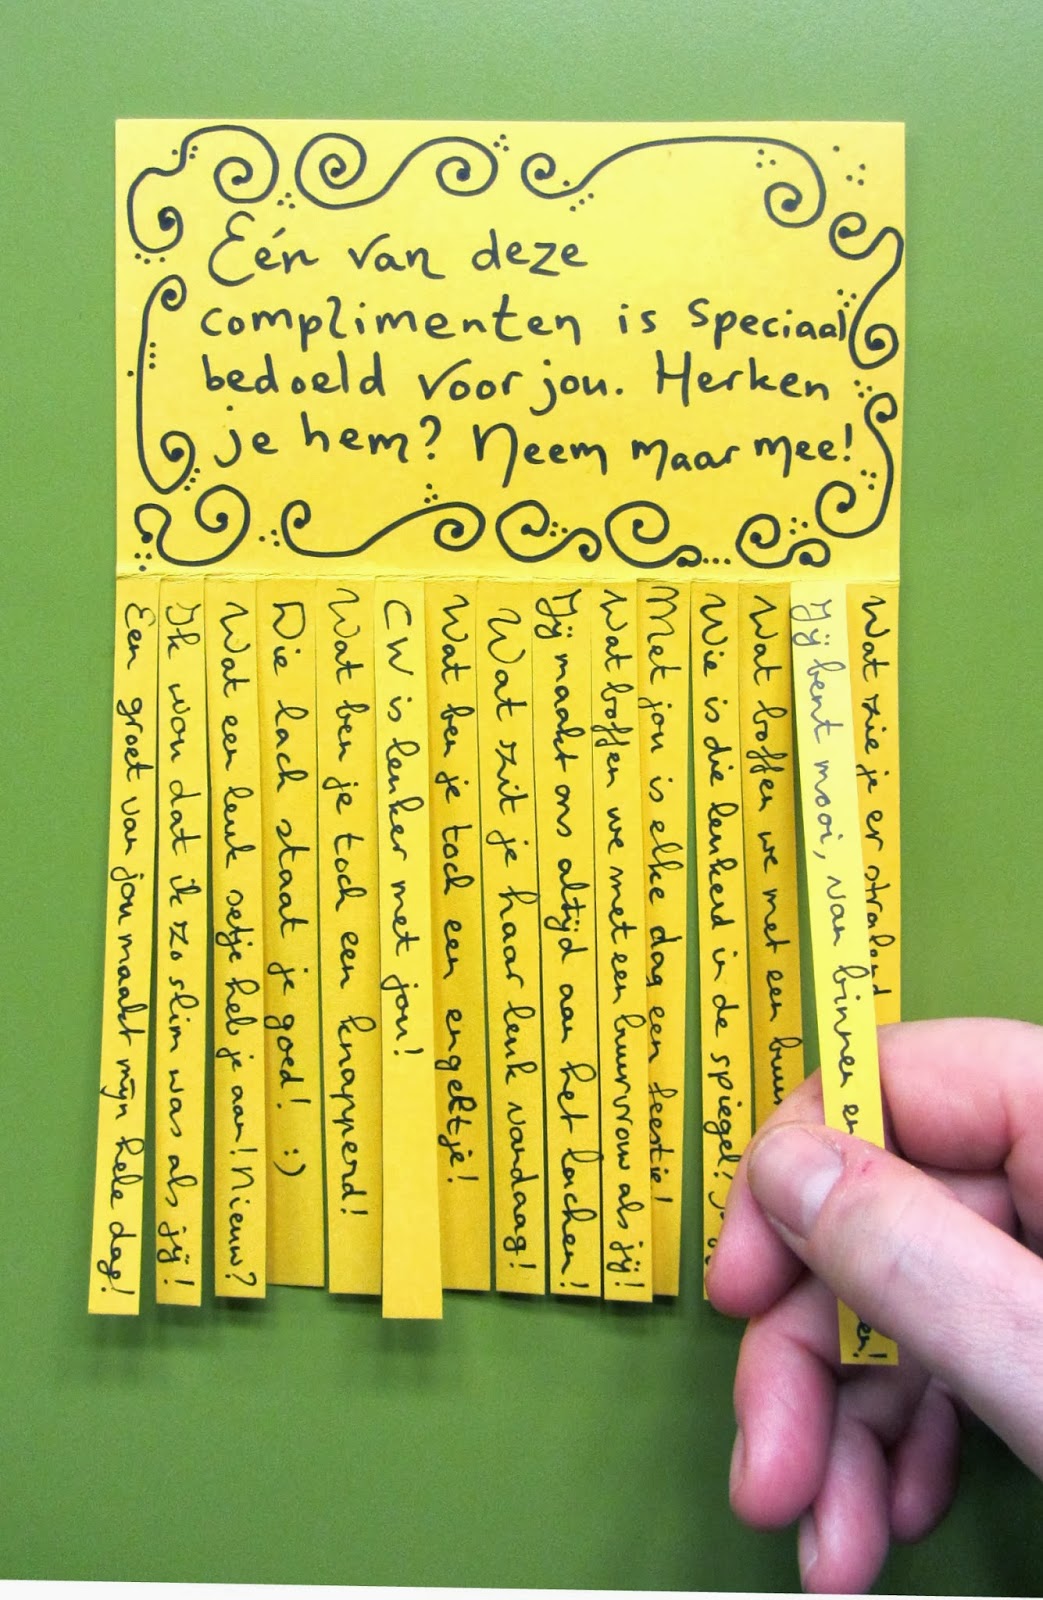 Eén van deze
complimenten is speciaal
bedoeld voor jou. Herken
je hem? Neem maar mee!
Een groet van jou maakt mijn hele dag!
Ik wou dat ik zo slim was als jij!
Wat een leuk setje heb je aan! Nieuw?
Die lach staat je goed! :)
Wat ben je toch een knapperd!
CW is leuker met jou!
Wat ben je toch een engeltje!
Wat zit je haar leuk vandaag!
Jij maakt ons altijd aan het lachen!
Wat boffen we met een buurvrouw als jij!
Met jou is elke dag een feestje!
Wie is die leukerd in de spiegel?
Wat boffen we met een
Jij bent mooi, van binnen en
Wat zie je er stralend